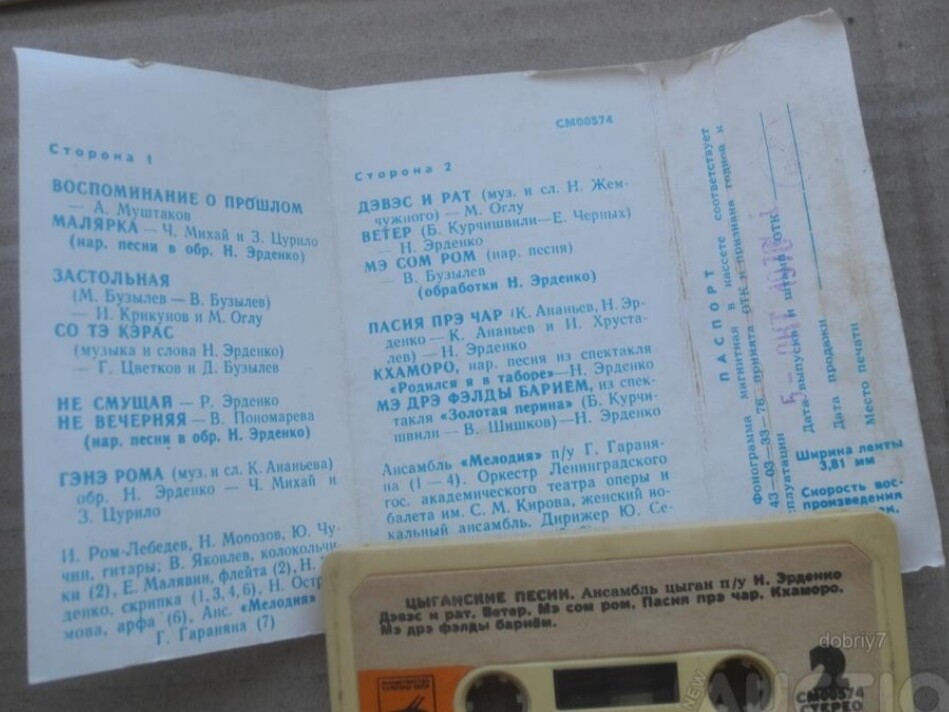 Сторона 1
ВОСПОМИНАНИЕ О ПРОШЛОМ
— А. Муштаков
МАЛЯРКА — Ч. Михай и З. Цурило
(нар. песни в обр. Н. Эрденко)
ЗАСТОЛЬНАЯ
(М. Бузылев — В. Бузылев)
— И. Крикунов и М. Оглу
СО ТЭ КЭРАС
(музыка и слова Н. Эрденко)
— Г. Цветков и Д. Бузылев
НЕ СМУЩАЙ — Р. Эрденко
НЕ ВЕЧЕРНЯЯ — В. Пономарева
(нар. песни в обр. Н. Эрденко)
ГЭНЭ РОМА (муз. и сл. К. Ананьева)
обр. Н. Эрденко — Ч. Михай и
З. Цурило
И. Ром-Лебедев, Н. Морозов, Ю. Чу-
чин, гитары; В. Яковлев, колокольчи-
ки (2), Е. Малявин, флейта (2), Н.
денко, скрипка (1, 3, 4, 6), Н. Остр
мова, арфа (6), Анс. «Мелодия»
Г. Гараняна (7)
СМ00574
Сторона 2
ДЭВЭС И РАТ (муз. и сл. Н. Жем-
чужного) — М. Оглу
ВЕТЕР (Б. Курчишвили—Е. Черных)
— Н. Эрденко
МЭ СОМ РОМ (нар. песня)
— В. Бузылев
(обработки Н. Эрденко)
ПАСИЯ ПРЭ ЧАР (К. Ананьев, Н. Эр-
денко — К. Ананьев и И. Хруста-
лев) — Н. Эрденко
КХАМОРО, нар. песня из спектакля
«Родился я в таборе»—Н. Эрденко
МЭ ДРЭ ФЭЛДЫ БАРИЁМ, из спек-
такля «Золотая перина» (Б. Курчи-
швили — В. Шишков)—Н. Эрденко
Ансамбль «Мелодия» п/у Г. Гараня-
на (1—4). Оркестр Ленинградского
гос. академического театра оперы и
балета им. С. М. Кирова, женский во-
кальный ансамбль. Дирижер Ю. Се-
ПАСПОРТ
Фонограмма магнитная в кассете соответствует
43—03—33—76 принята ОТК и признана годной к
эксплуатации
Дата выпуска и штамп ОТК
5 - ОКТ 1978
Дата продажи
Место печати
Ширина ленты
3,81 мм
Скорость вос-
произведения
ЦЫГАНСКИЕ ПЕСНИ. Ансамбль цыган п/у Н. Эрденко
Дэвэс и рат. Ветер. Мэ сом ром. Пасия прэ чар. Кхаморо.
Мэ дрэ фэлды бариём.
dobriy7
2
СМ00574
СТЕРЕО
NEW
AUCTIO